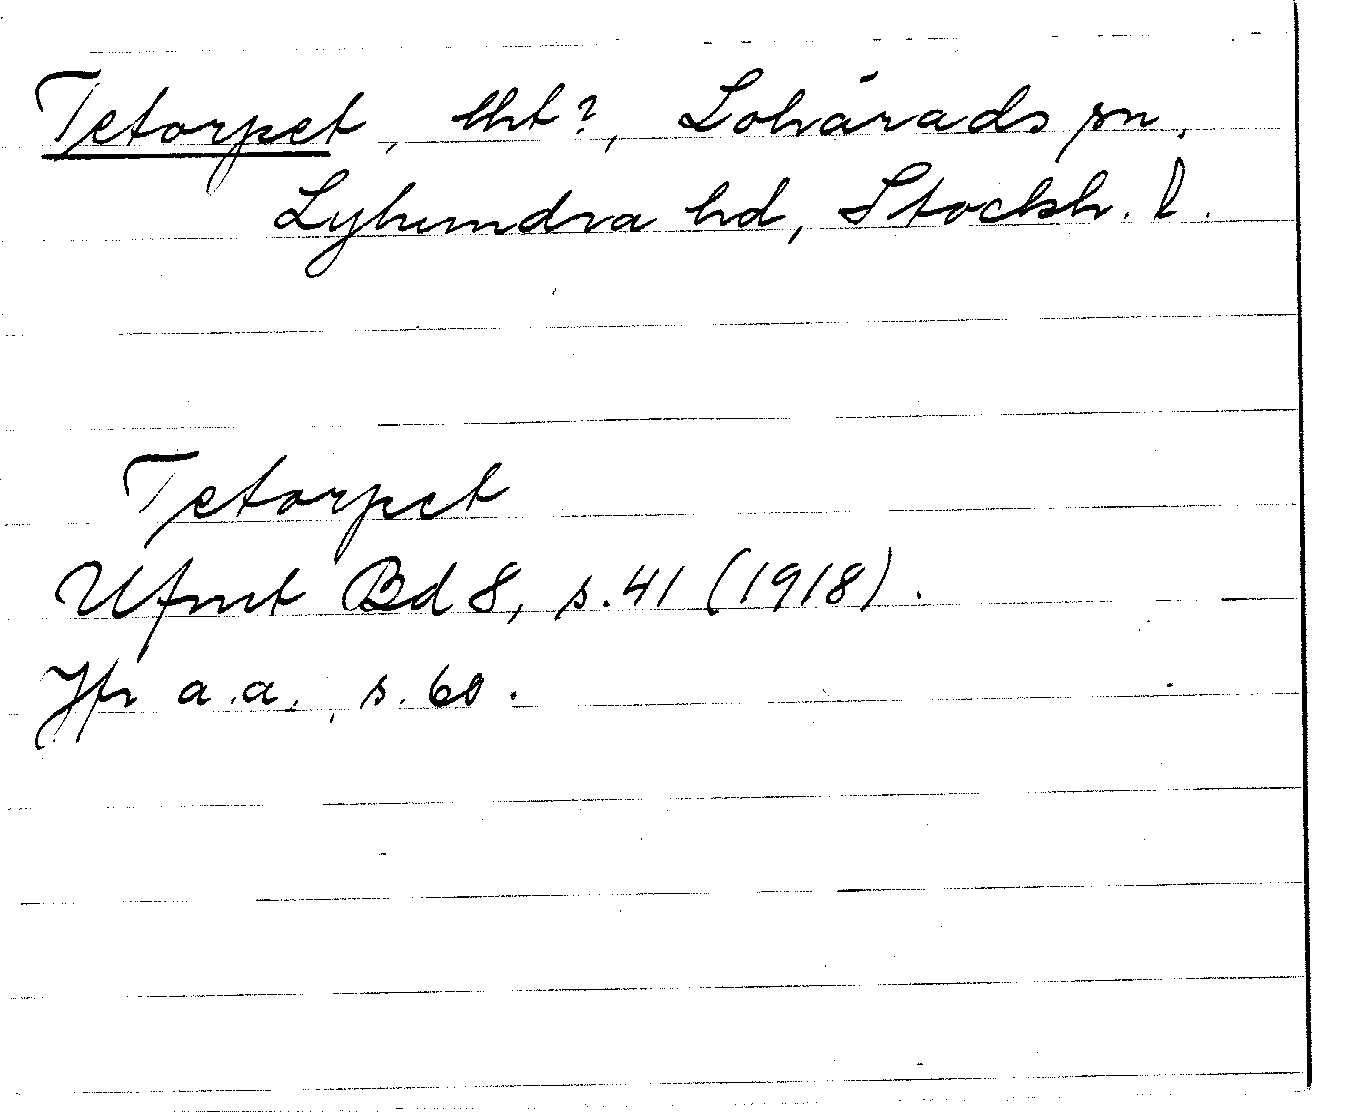 Tetorpet, lht?, Lohärads sn.
Lyhundra hd, Stockh. l.
Tetorpet
Ufmt Bd 8, s. 41 (1918).
Jfr a.a., s. 60.